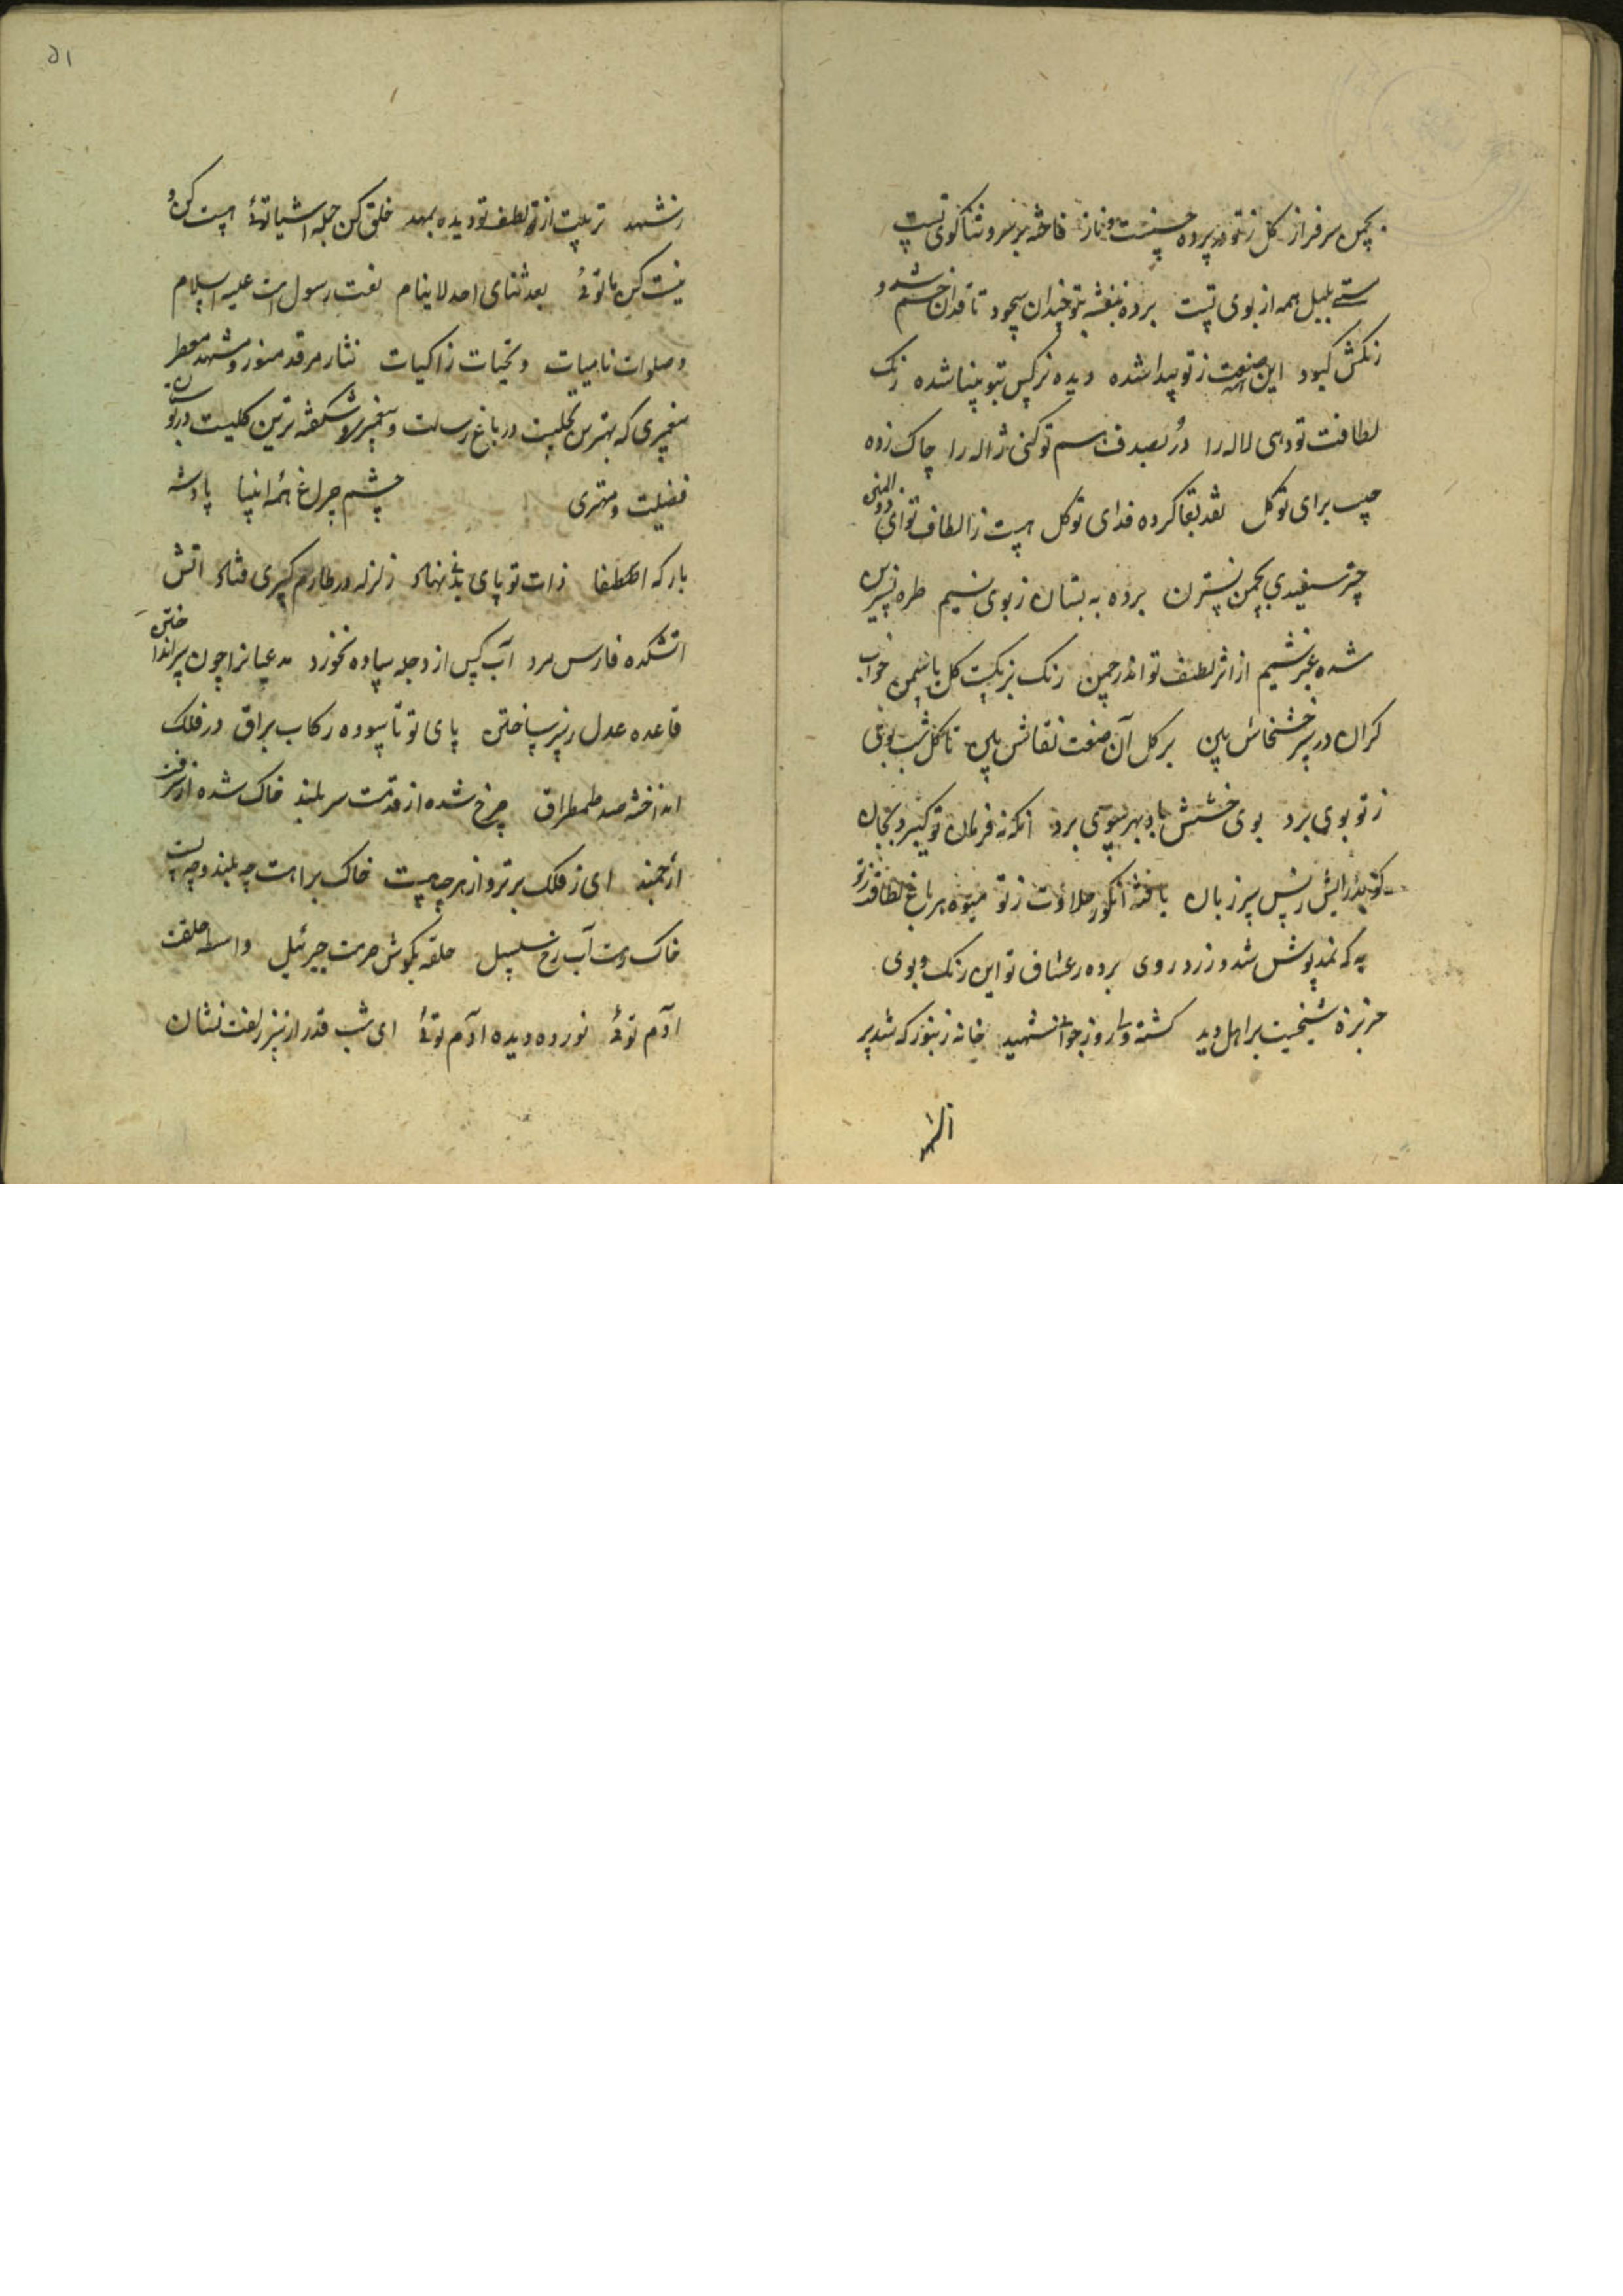 بچمن سرفراز کل ز تو در پرده حسنست و ناز فاخته بر سرو ثناکوی تست
مستی بلبل همه از بوی تست برده بنفشه بتو چندان سجود تا قدش خم شد و
رنکش کبود این صنعت ز تو پیدا شده دیده نرکس بتو بینا شده رنک
لطافت تو دهی لاله را در بصدف هم تو کنی ژاله را چاک زده
جیب برای تو کل نقد بقا کرده فدای تو کل هست ز الطاف تو ای ذو المنن
چتر سفیدی بچمن نسترن برده به بستان ز بوی نسیم طره نسرین
شده عنبر شمیم از اثر لطف تو اندر چمن رنک بر نکیست کل یاسمن خواب
کران در سر خشخاش بین بر کل آن صنعت نقاش بین تا کل شب بوی
ز تو بوی برد بوی خشش باد بهر سوی برد انکه نه فرمان تو کیرد بجان
یافته انکور حلاوت ز تو میوه هر باغ لطافت ز تو
به که نمدپوش شد و زرد روی برده ز عشاق تو این رنک و بوی
خربزه شیخیست بر اهل دید خانه زنبور که شد پر
از شهد
۵۱
ز شهد تربیت از لطف تو دیده بمهد خلق کن جمله اشیا توئی هست کن و
نیست کن ما توئی بعد ثنای احد لا ینام نعت رسول است علیه السلام
و صلوات نامیات و تحیات زاکیات نثار مرقد منور و مشهد معطر
پیغمبری که بهترین نخلیست در باغ رسالت و پیغمبری و شکفته ترین کلیست در بوستان
فضیلت و مهتری چشم چراغ همه انبیا پادشه
بارکه اصطفا ذات تو پای بدنیا نهاد زلزله در طارم کسری فتاد اتش
اتشکده فارس مرد آب کس از دجله ساوه نخورد مدعیانرا چون سر انداختن
قاعده عدل ز سر ساختن پای تو تا سوده رکاب براق در فلک
انداخته صد طمطراق چرخ شده از قدمت سر بلند خاک شده از شرفت
ارجمند ای ز فلک برتر و از هر چه هست خاک براهت چه بلند و چه پست
خاک رهت آب رخ سلسبیل حلقه بکوش حرمت جبرئیل واسطه خلقت
آدم توئی نور ده دیده آدم توئی ای شب قدر از سر زلفت نشان